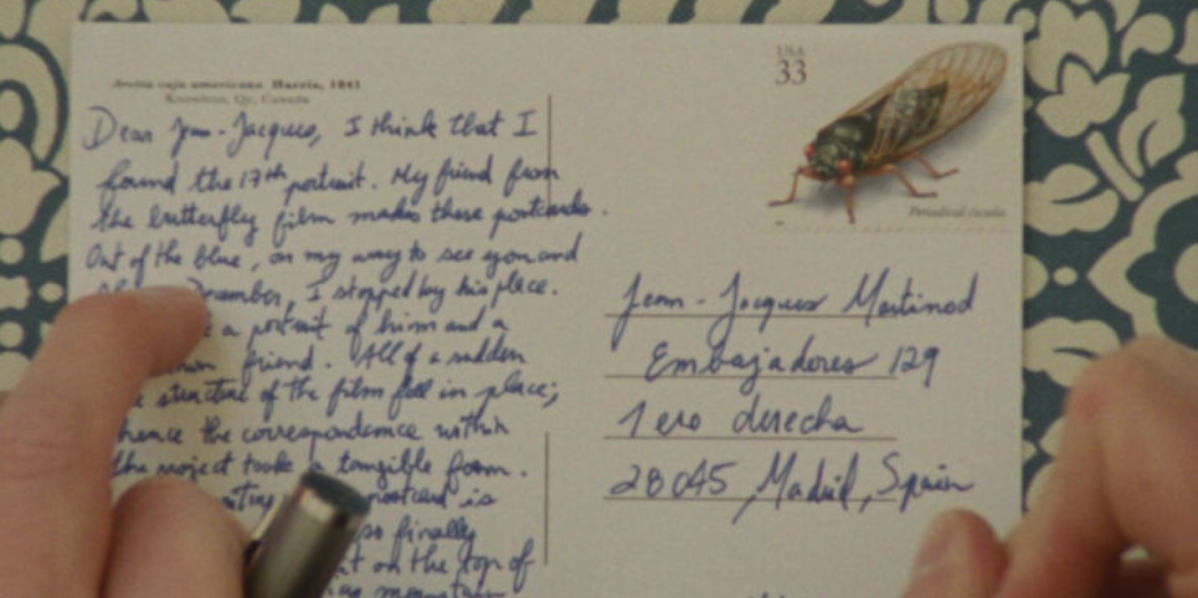 Arctia caja americana Harris, 1841
Knowlton, Qc, Canada
Dear Jean-Jacques, I think that I
found the 17th portrait. My friend from
the butterfly film makes these postcards.
Out of the blue, on my way to see you and
December, I stopped by his place.
a portrait of him and a
friend. All of a sudden
structure of the film fell in place;
hence the correspondence within
the project took a tangible form.
postcard is
so finally
on the top of
mountain
USA
33
Periodical cicada
Jean-Jacques Martinod
Embajadores 129
1ero derecha
28045, Madrid, Spain